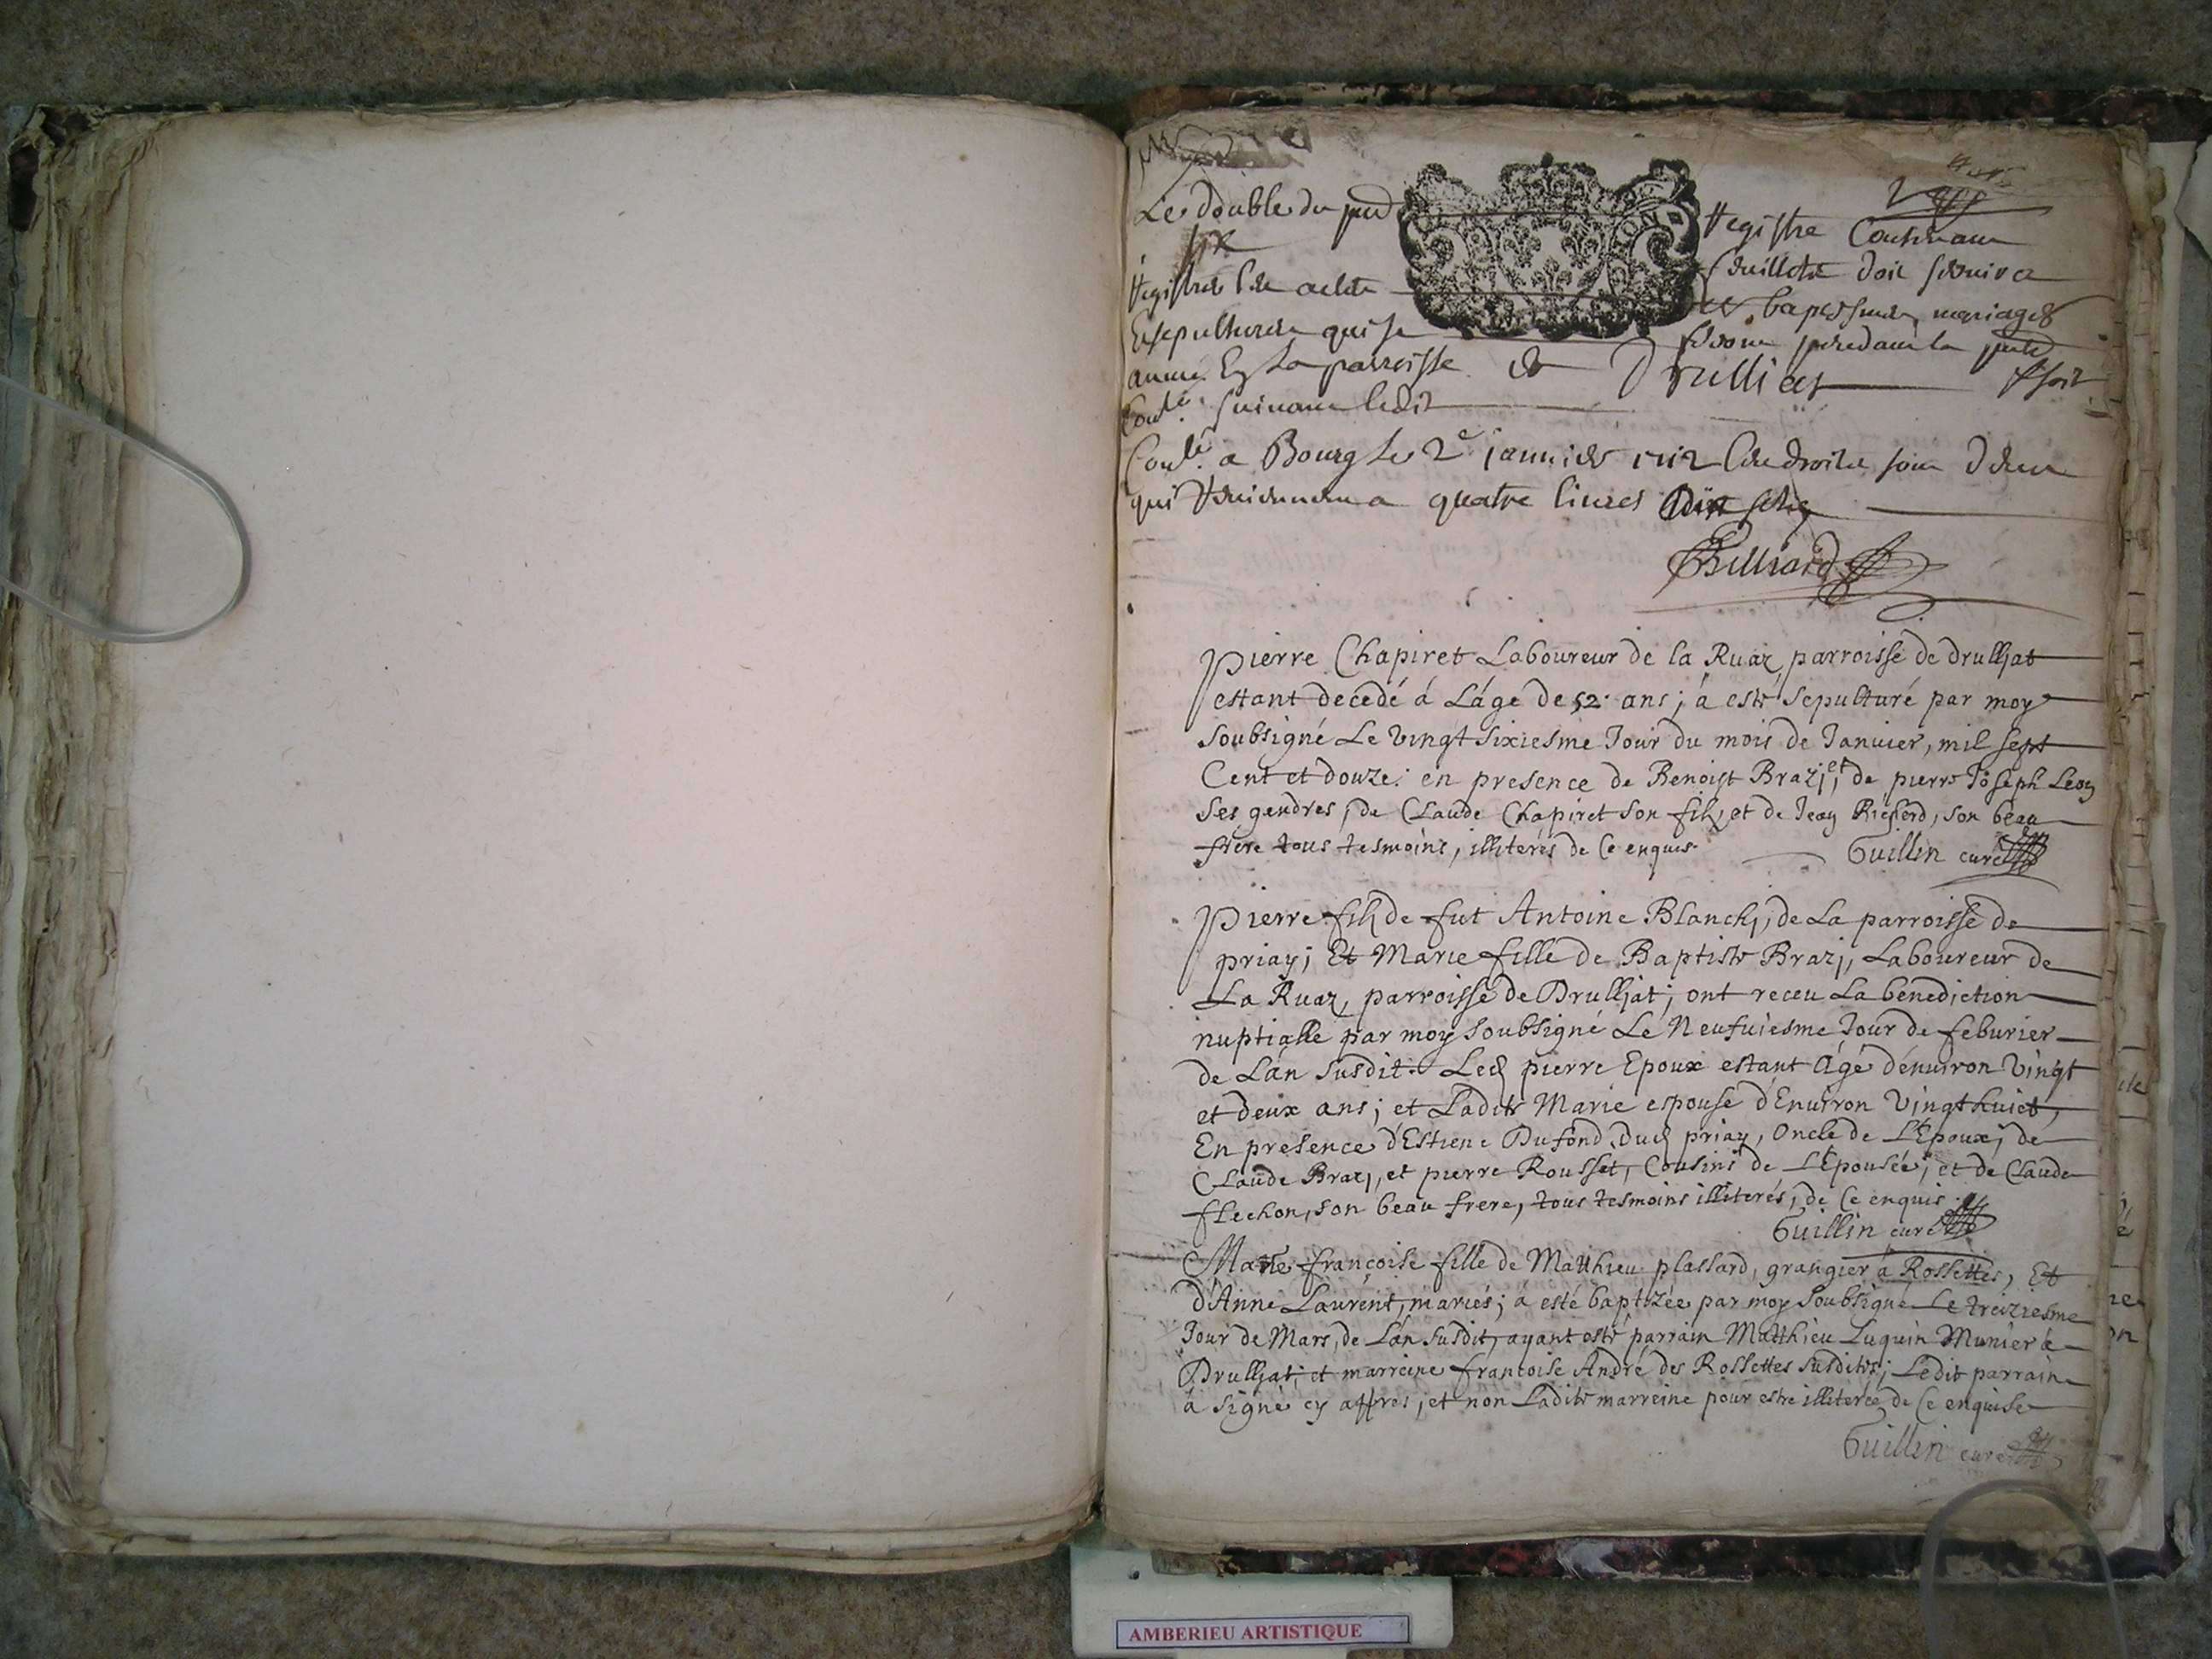 Le double du pnt Registre Contenant
six feuillets doit servir a
Registrer les actes de baptesmes, mariages
Et sepultures qui se feront pendant la pnte
année En la parroisse de Drulliat
Conlé suivant ledit
Conlé a Bourg le 2e januier 1712 les droits
qui Reviennent a quatre livres dix sols
Billiard
Pierre Chapiret Laboureur de la Ruaz parroisse de drulljat
estant decedé á Láge de 52 ans; á esté sepulturé par moy
soubsigné Le vingt sixiesme Jour du mois de Januier, mil sept
Cent et douze: en presence de Benoist Brazj, et de pierre Joseph Leoy
ses gendres; de Claude Chapiret son filz, et de Jeay, son beau
frére tous tesmoins, illiterés de Ce enquis.
Guillin curé
Pierre filz de fut Antoine Blanchj, de La parroisse de
priay; Et Marie fille de Baptiste Brazj, Laboureur de
La Ruaz, parroisse de Drulljat; ont receu La benediction
nuptialle par moy soubsigné Le Neufuiesme Jour de feburier
de Lán susdit. Led pierre Epoux estant Ágé dénuiron vingt
et deux ans; et Ladite Marie espouse d'Enuiron vingt huict,
En presence d'Estiene Dufond dud priay, Oncle de L'Epoux; de
Claude Brazj, et pierre Rousset, Cousins de L'Epousée; et de Claude
flechon, son beau frere, tous tesmoins illiterés, de Ce enquis.
Guillin curé
Marie françoise fille de Matthieu plassard, grangier à Rossettes, Et
d'Anne Laurent, mariés; á esté baptizée par moy soubsigné Le treiziesme
Jour de Mars, de Lán susdit, ayant esté parrain Matthieu Luquin Munier à
Drulljat; et marreine francoise André des Rossettes susdites; Ledit parrain
á signé cy apres; et non Ladite marreine pour estre illiterée de Ce enquise
Guillin curé
AMBERIEU ARTISTIQUE